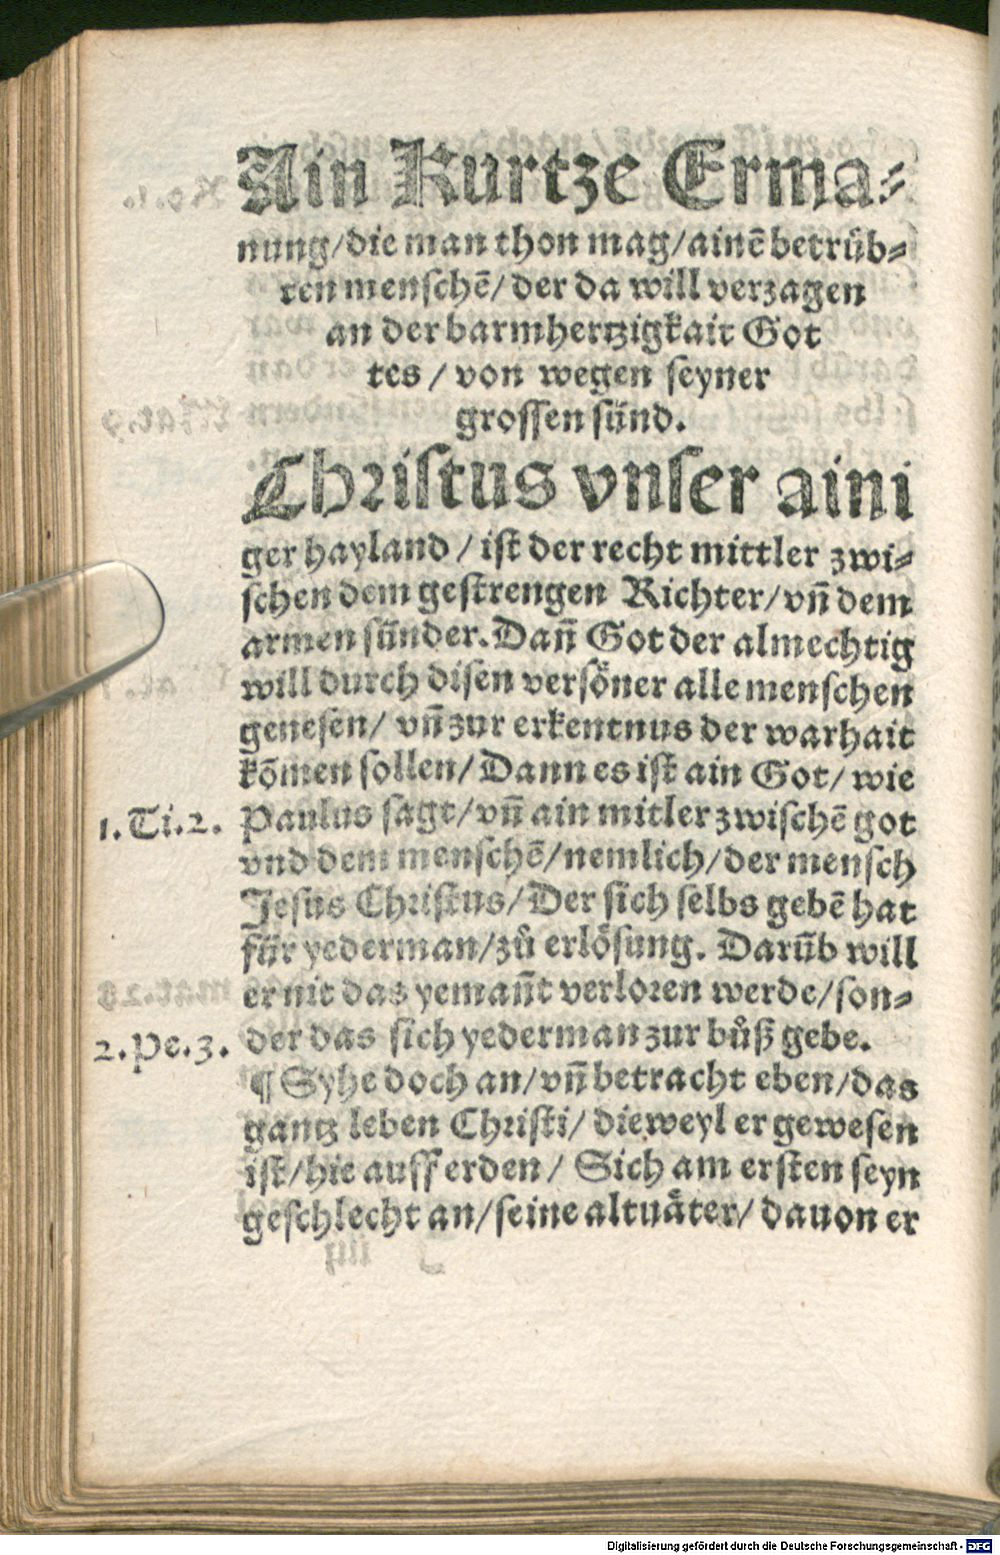 Ain Kurtze Erma⸗
nung/die man thon mag/ainē betrüb⸗
ten menschē/ der da will verzagen
an der barmhertzigkait Got
tes / von wegen seyner
grossen sünd.
Christus vnser aini
ger hayland / ist der recht mittler zwi⸗
schen dem gestrengen Richter/vn̄ dem
armen sünder. Dan̄ Got der almechtig
will durch disen versöner alle menschen
genesen/ vn̄ zur erkentnus der warhait
kōmen sollen/ Dann es ist ain Got/ wie
1. Ti. 2. Paulus sagt/ vn̄ ain mitler zwischē got
vnd dem menschē/nemlich/der mensch
Jesus Christus/ Der sich selbs gebē hat
für yederman/zů erlösung. Darüb will
er nit das yeman̄t verloren werde/son⸗
2. Pe. 3. der das sich yederman zur bůß gebe.
¶ Syhe doch an/vn̄ betracht eben/das
gantz leben Christi/ dieweyl er gewesen
ist/hie auff erden / Sich am ersten seyn
geschlecht an/seine altuäter/ dauon er
Digitalisierung gefördert durch die Deutsche Forschungsgemeinschaft - DFG